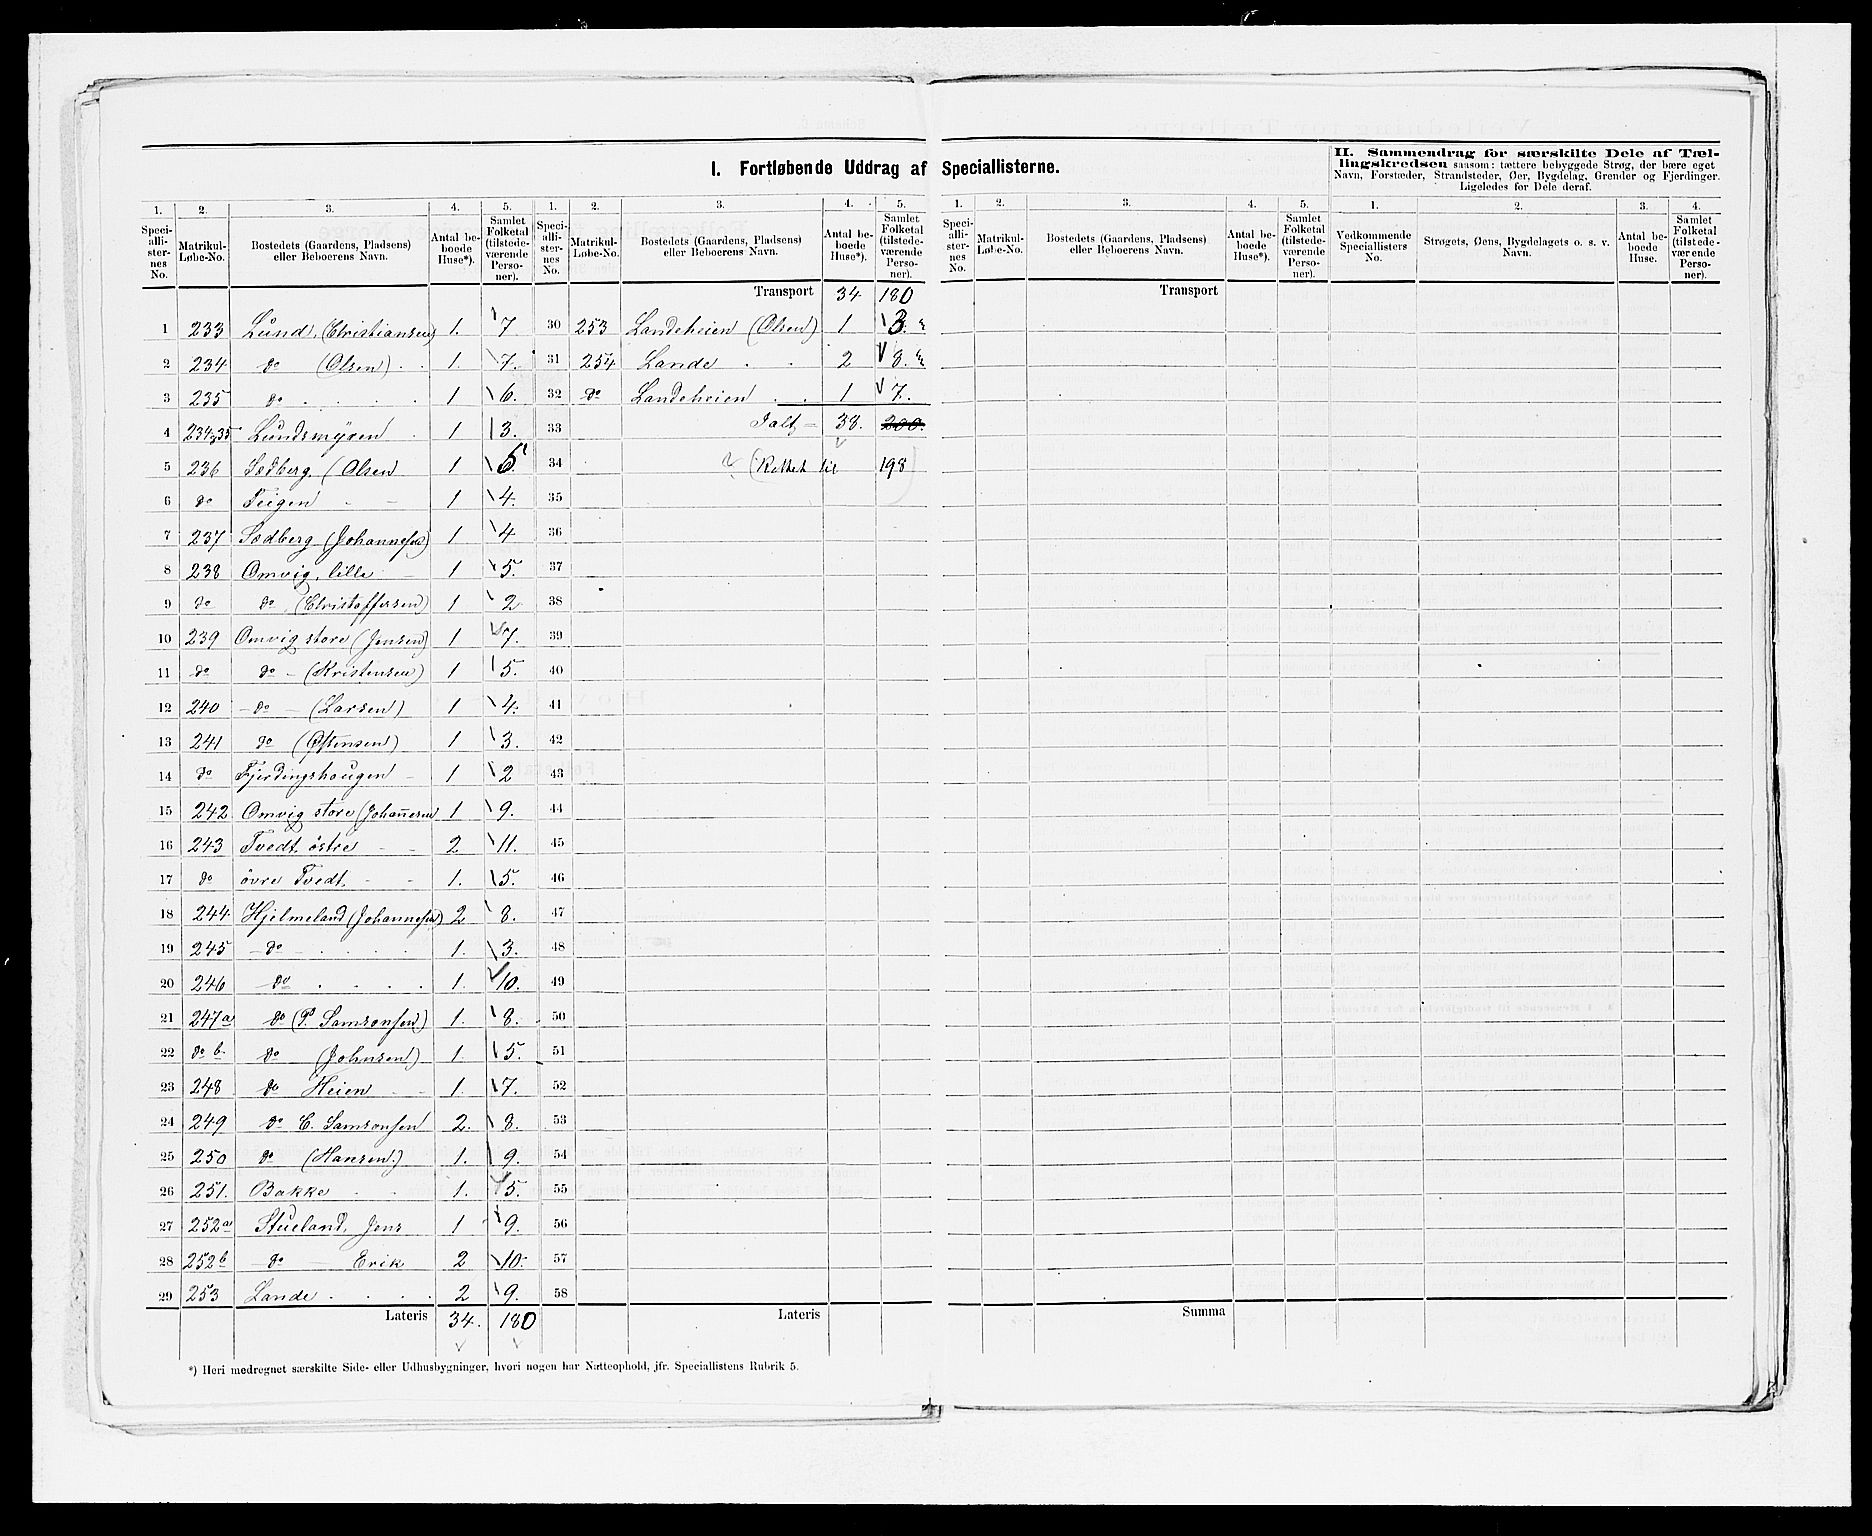 I. Fortløbende Uddrag af Speciallisterne.
II. Sammendrag for særskilte Dele af Tæl-
lingskredsen saasom: tættere bebyggede Strøg, der bære eget
Navn, Forstæder, Strandsteder, Øer, Bygdelag, Grender og Fjerdinger.
Ligeledes for Dele deraf.
1. 2. 3. 4. 5. 1. 2. 3. 4. 5. 1. 2. 3. 4. 5. 1. 2. 3. 4.
Speci-
alli-
ster-
nes
No.
Matrikul-
Løbe-No.
Bostedets (Gaardens, Pladsens)
eller Beboerens Navn.
Antal be-
boede
Huse*).
Samlet
Folketal
(tilstede-
værende
Perso-
ner).
Speci-
alli-
ster-
nes
No.
Matrikul-
Løbe-No.
Bostedets (Gaardens, Pladsens)
eller Beboerens Navn.
Antal be-
boede
Huse*).
Samlet
Folketal
(tilstede-
værende
Perso-
ner).
Speci-
alli-
ster-
nes
No.
Matrikul-
Løbe-No.
Bostedets (Gaardens, Pladsens)
eller Beboerens Navn.
Antal be-
boede
Huse*).
Samlet
Folketal
(tilstede-
værende
Perso-
ner).
Vedkommende
Speciallisters
No.
Strøgets, Øens, Bygdelagets o. s. v.
Navn.
Antal be-
boede
Huse.
Samlet
Folketal
(tilstede-
værende
Perso-
ner).
1 233 Lund, (Christiansen) 1. 7
2 234 do (Olsen) 1. 7.
3 235 do 1 6.
4 234,35 Lundsmyren 1 3.
5 236 Sædberg (Olsen 1 5
6 do Teigen 1 4.
7 237 Sædberg (Johannesen) 1 4
8 238 Omvig, lille 1 5.
9 do do (Christoffersen) 1 2
10 239 Omvig store (Jensen) 1 7.
11 do do (Kristensen) 1 5.
12 240 do (Larsen) 1 4.
13 241 do (Østensen) 1 3.
14 do Fjerdingshaugen 1 2
15 242 Omvig store (Johannesen 1 9.
16 243 Tvedt, östre 2 11.
17 do övre Tvedt. 1. 5.
18 244 Hjelmeland (Johannesen) 2 8.
19 245 do 1. 3.
20 246 do 1. 10.
21 247a do (P. Samsonsen) 1. 8.
22 do b do (Johnsen) 1. 5.
23 248 do Heien 1. 7.
24 249 do C. Samsonsen 2. 8.
25 250 do (Hansen.) 1. 9.
26 251. Bakke 1. 5.
27 252a Stueland, Jens 1 9.
28 252b do Erik 2 10.
29 253 Lande 2 9.
Lateris 34. 180
Transport 34 180
30 253 Landeheien (Olsen) 1 3.
31 254 Lande 2 8.
32 do Landeheien 1 7.
33 Ialt 38. 200.
34 (Rettet til 198
35
36
37
38
39
40
41
42
43
44
45
46
47
48
49
50
51
52
53
54
55
56
57
58
Lateris
Transport
Summa
*) Heri medregnet særskilte Side- eller Udhusbygninger, hvori nogen har Natteophold, jfr. Speciallistens Rubrik 5.